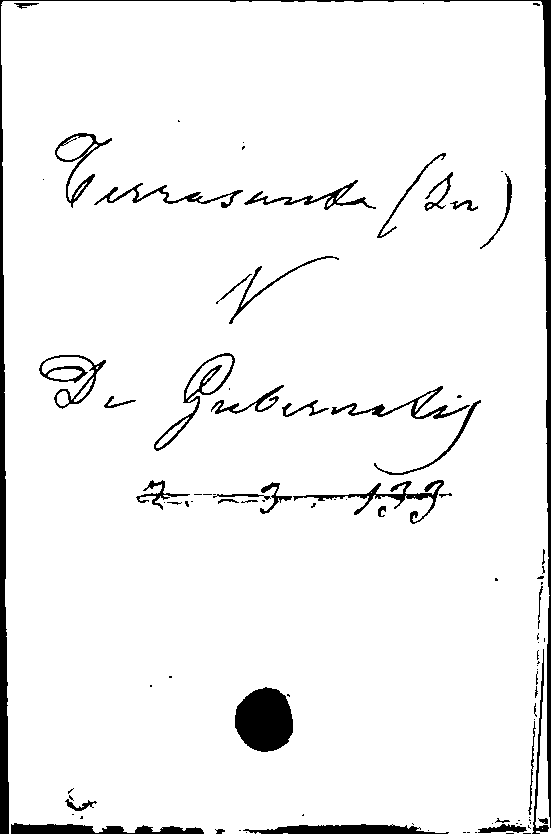 Terrasanta (In)
V
De Gubernatis
7. 3. 133